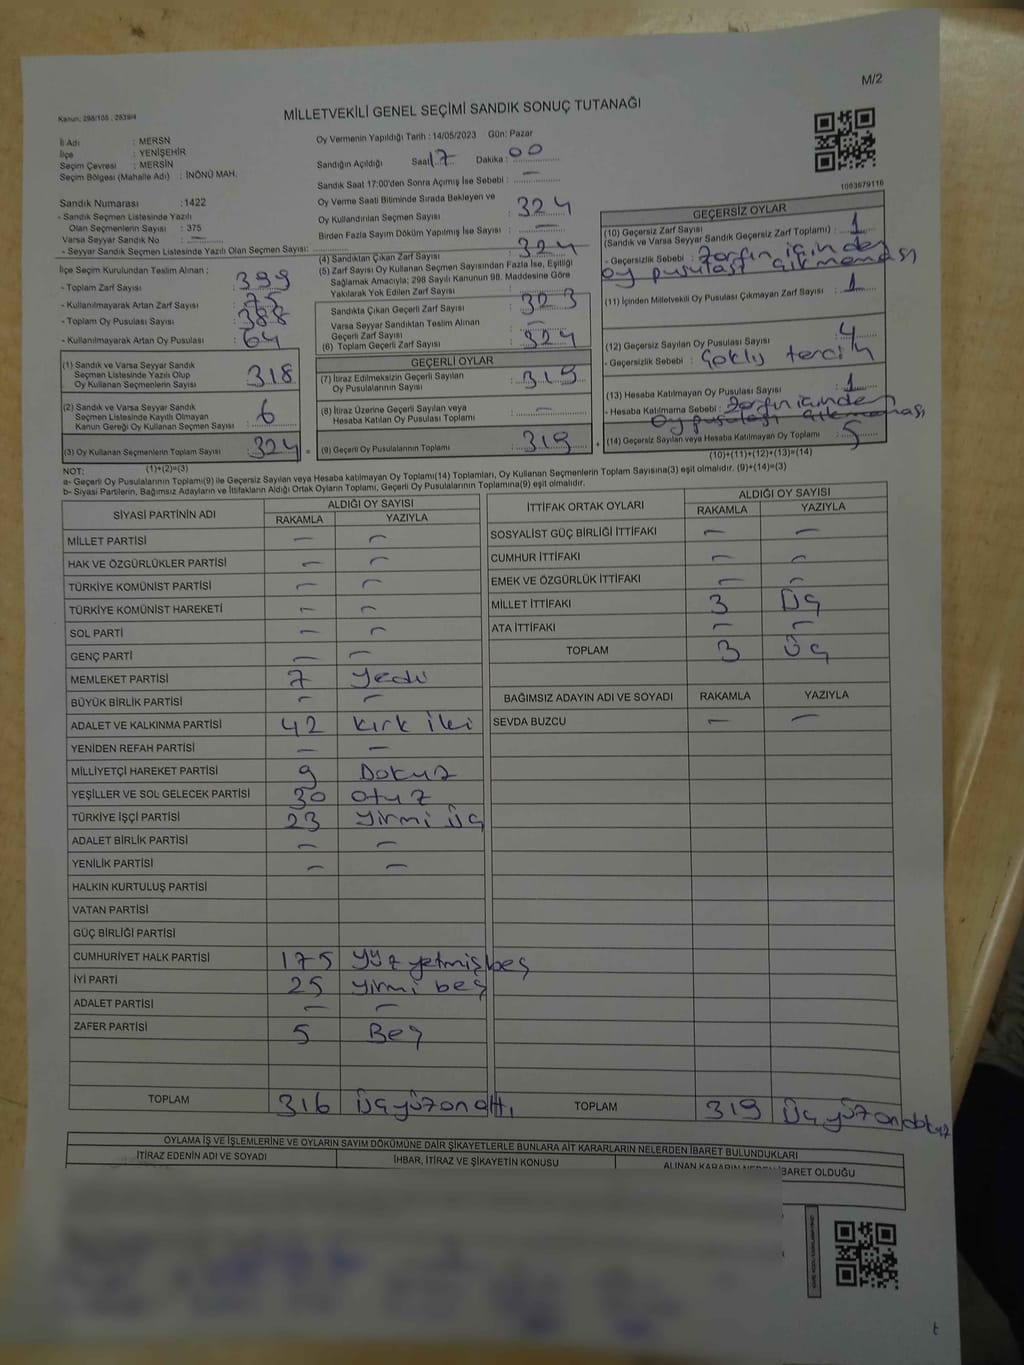 M/2
Kanun; 298/105 , 2839/4
MİLLETVEKİLİ GENEL SEÇİMİ SANDIK SONUÇ TUTANAĞI
İl Adı : MERSN
İlçe : YENİŞEHİR
Seçim Çevresi : MERSİN
Seçim Bölgesi (Mahalle Adı) : İNÖNÜ MAH.
Sandık Numarası :1422
- Sandık Seçmen Listesinde Yazılı
Olan Seçmenlerin Sayısı : 375
Varsa Seyyar Sandık No : —
- Seyyar Sandık Seçmen Listesinde Yazılı Olan Seçmen Sayısı:
İlçe Seçim Kurulundan Teslim Alınan ;
- Toplam Zarf Sayısı : 399
- Kullanılmayarak Artan Zarf Sayısı : 75
- Toplam Oy Pusulası Sayısı : 388
- Kullanılmayarak Artan Oy Pusulası : 64
(1) Sandık ve Varsa Seyyar Sandık
Seçmen Listesinde Yazılı Olup
Oy Kullanan Seçmenlerin Sayısı : 318
(2) Sandık ve Varsa Seyyar Sandık
Seçmen Listesinde Kayıtlı Olmayan
Kanun Gereği Oy Kullanan Seçmen Sayısı : 6
(3) Oy Kullanan Seçmenlerin Toplam Sayısı : 324
(1)+(2)=(3)
Oy Vermenin Yapıldığı Tarih : 14/05/2023 Gün: Pazar
Sandığın Açıldığı Saat 17 Dakika : 00
Sandık Saat 17:00'den Sonra Açımış İse Sebebi : —
Oy Verme Saati Bitiminde Sırada Bekleyen ve
Oy Kullandırılan Seçmen Sayısı : 324
Birden Fazla Sayım Döküm Yapılmış İse Sayısı : —
(4) Sandıktan Çıkan Zarf Sayısı : 324
(5) Zarf Sayısı Oy Kullanan Seçmen Sayısından Fazla İse, Eşitliği
Sağlamak Amacıyla; 298 Sayılı Kanunun 98. Maddesine Göre
Yakılarak Yok Edilen Zarf Sayısı :
Sandıkta Çıkan Geçerli Zarf Sayısı : 323
Varsa Seyyar Sandıktan Teslim Alınan
Geçerli Zarf Sayısı : —
(6) Toplam Geçerli Zarf Sayısı : 324
GEÇERLİ OYLAR
(7) İtiraz Edilmeksizin Geçerli Sayılan
Oy Pusulalarının Sayısı : 319
(8) İtiraz Üzerine Geçerli Sayılan veya
Hesaba Katılan Oy Pusulası Toplamı : —
(9) Geçerli Oy Pusulalarının Toplamı : 319
1003679116
GEÇERSİZ OYLAR
(10) Geçersiz Zarf Sayısı
(Sandık ve Varsa Seyyar Sandık Geçersiz Zarf Toplamı) : 1
- Geçersizlik Sebebi : Zarfın içinden
oy pusulası çıkmaması
(11) İçinden Milletvekili Oy Pusulası Çıkmayan Zarf Sayısı : 1
(12) Geçersiz Sayılan Oy Pusulası Sayısı : 4
- Geçersizlik Sebebi : Çoklu tercih
(13) Hesaba Katılmayan Oy Pusulası Sayısı : 1
- Hesaba Katılmama Sebebi : Zarfın içinden
oy pusulası çıkmaması
(14) Geçersiz Sayılan veya Hesaba Katılmayan Oy Toplamı : 5
(10)+(11)+(12)+(13)=(14)
NOT:
a- Geçerli Oy Pusulalarının Toplamı(9) ile Geçersiz Sayılan veya Hesaba katılmayan Oy Toplamı(14) Toplamları, Oy Kullanan Seçmenlerin Toplam Sayısına(3) eşit olmalıdır. (9)+(14)=(3)
b- Siyasi Partilerin, Bağımsız Adayların ve İttifakların Aldığı Ortak Oyların Toplamı, Geçerli Oy Pusulalarının Toplamına(9) eşit olmalıdır.
SİYASİ PARTİNİN ADI ALDIĞI OY SAYISI
RAKAMLA YAZIYLA
MİLLET PARTİSİ — —
HAK VE ÖZGÜRLÜKLER PARTİSİ — —
TÜRKİYE KOMÜNİST PARTİSİ — —
TÜRKİYE KOMÜNİST HAREKETİ — —
SOL PARTİ — —
GENÇ PARTİ — —
MEMLEKET PARTİSİ 7 yedi
BÜYÜK BİRLİK PARTİSİ — —
ADALET VE KALKINMA PARTİSİ 42 kırk iki
YENİDEN REFAH PARTİSİ — —
MİLLİYETÇİ HAREKET PARTİSİ 9 Dokuz
YEŞİLLER VE SOL GELECEK PARTİSİ 30 otuz
TÜRKİYE İŞÇİ PARTİSİ 23 yirmi üç
ADALET BİRLİK PARTİSİ — —
YENİLİK PARTİSİ — —
HALKIN KURTULUŞ PARTİSİ
VATAN PARTİSİ
GÜÇ BİRLİĞİ PARTİSİ
CUMHURİYET HALK PARTİSİ 175 yüz yetmiş beş
İYİ PARTİ 25 yirmi beş
ADALET PARTİSİ — —
ZAFER PARTİSİ 5 Beş
TOPLAM 316 üçyüzonaltı
İTTİFAK ORTAK OYLARI ALDIĞI OY SAYISI
RAKAMLA YAZIYLA
SOSYALİST GÜÇ BİRLİĞİ İTTİFAKI — —
CUMHUR İTTİFAKI — —
EMEK VE ÖZGÜRLÜK İTTİFAKI — —
MİLLET İTTİFAKI 3 Üç
ATA İTTİFAKI — —
TOPLAM 3 üç
BAĞIMSIZ ADAYIN ADI VE SOYADI RAKAMLA YAZIYLA
SEVDA BUZCU — —
TOPLAM 319 üçyüzondokuz
OYLAMA İŞ VE İŞLEMLERİNE VE OYLARIN SAYIM DÖKÜMÜNE DAİR ŞİKAYETLERLE BUNLARA AİT KARARLARIN NELERDEN İBARET BULUNDUKLARI
İTİRAZ EDENİN ADI VE SOYADI İHBAR, İTİRAZ VE ŞİKAYETİN KONUSU ALINAN KARARIN NEDEN İBARET OLDUĞU